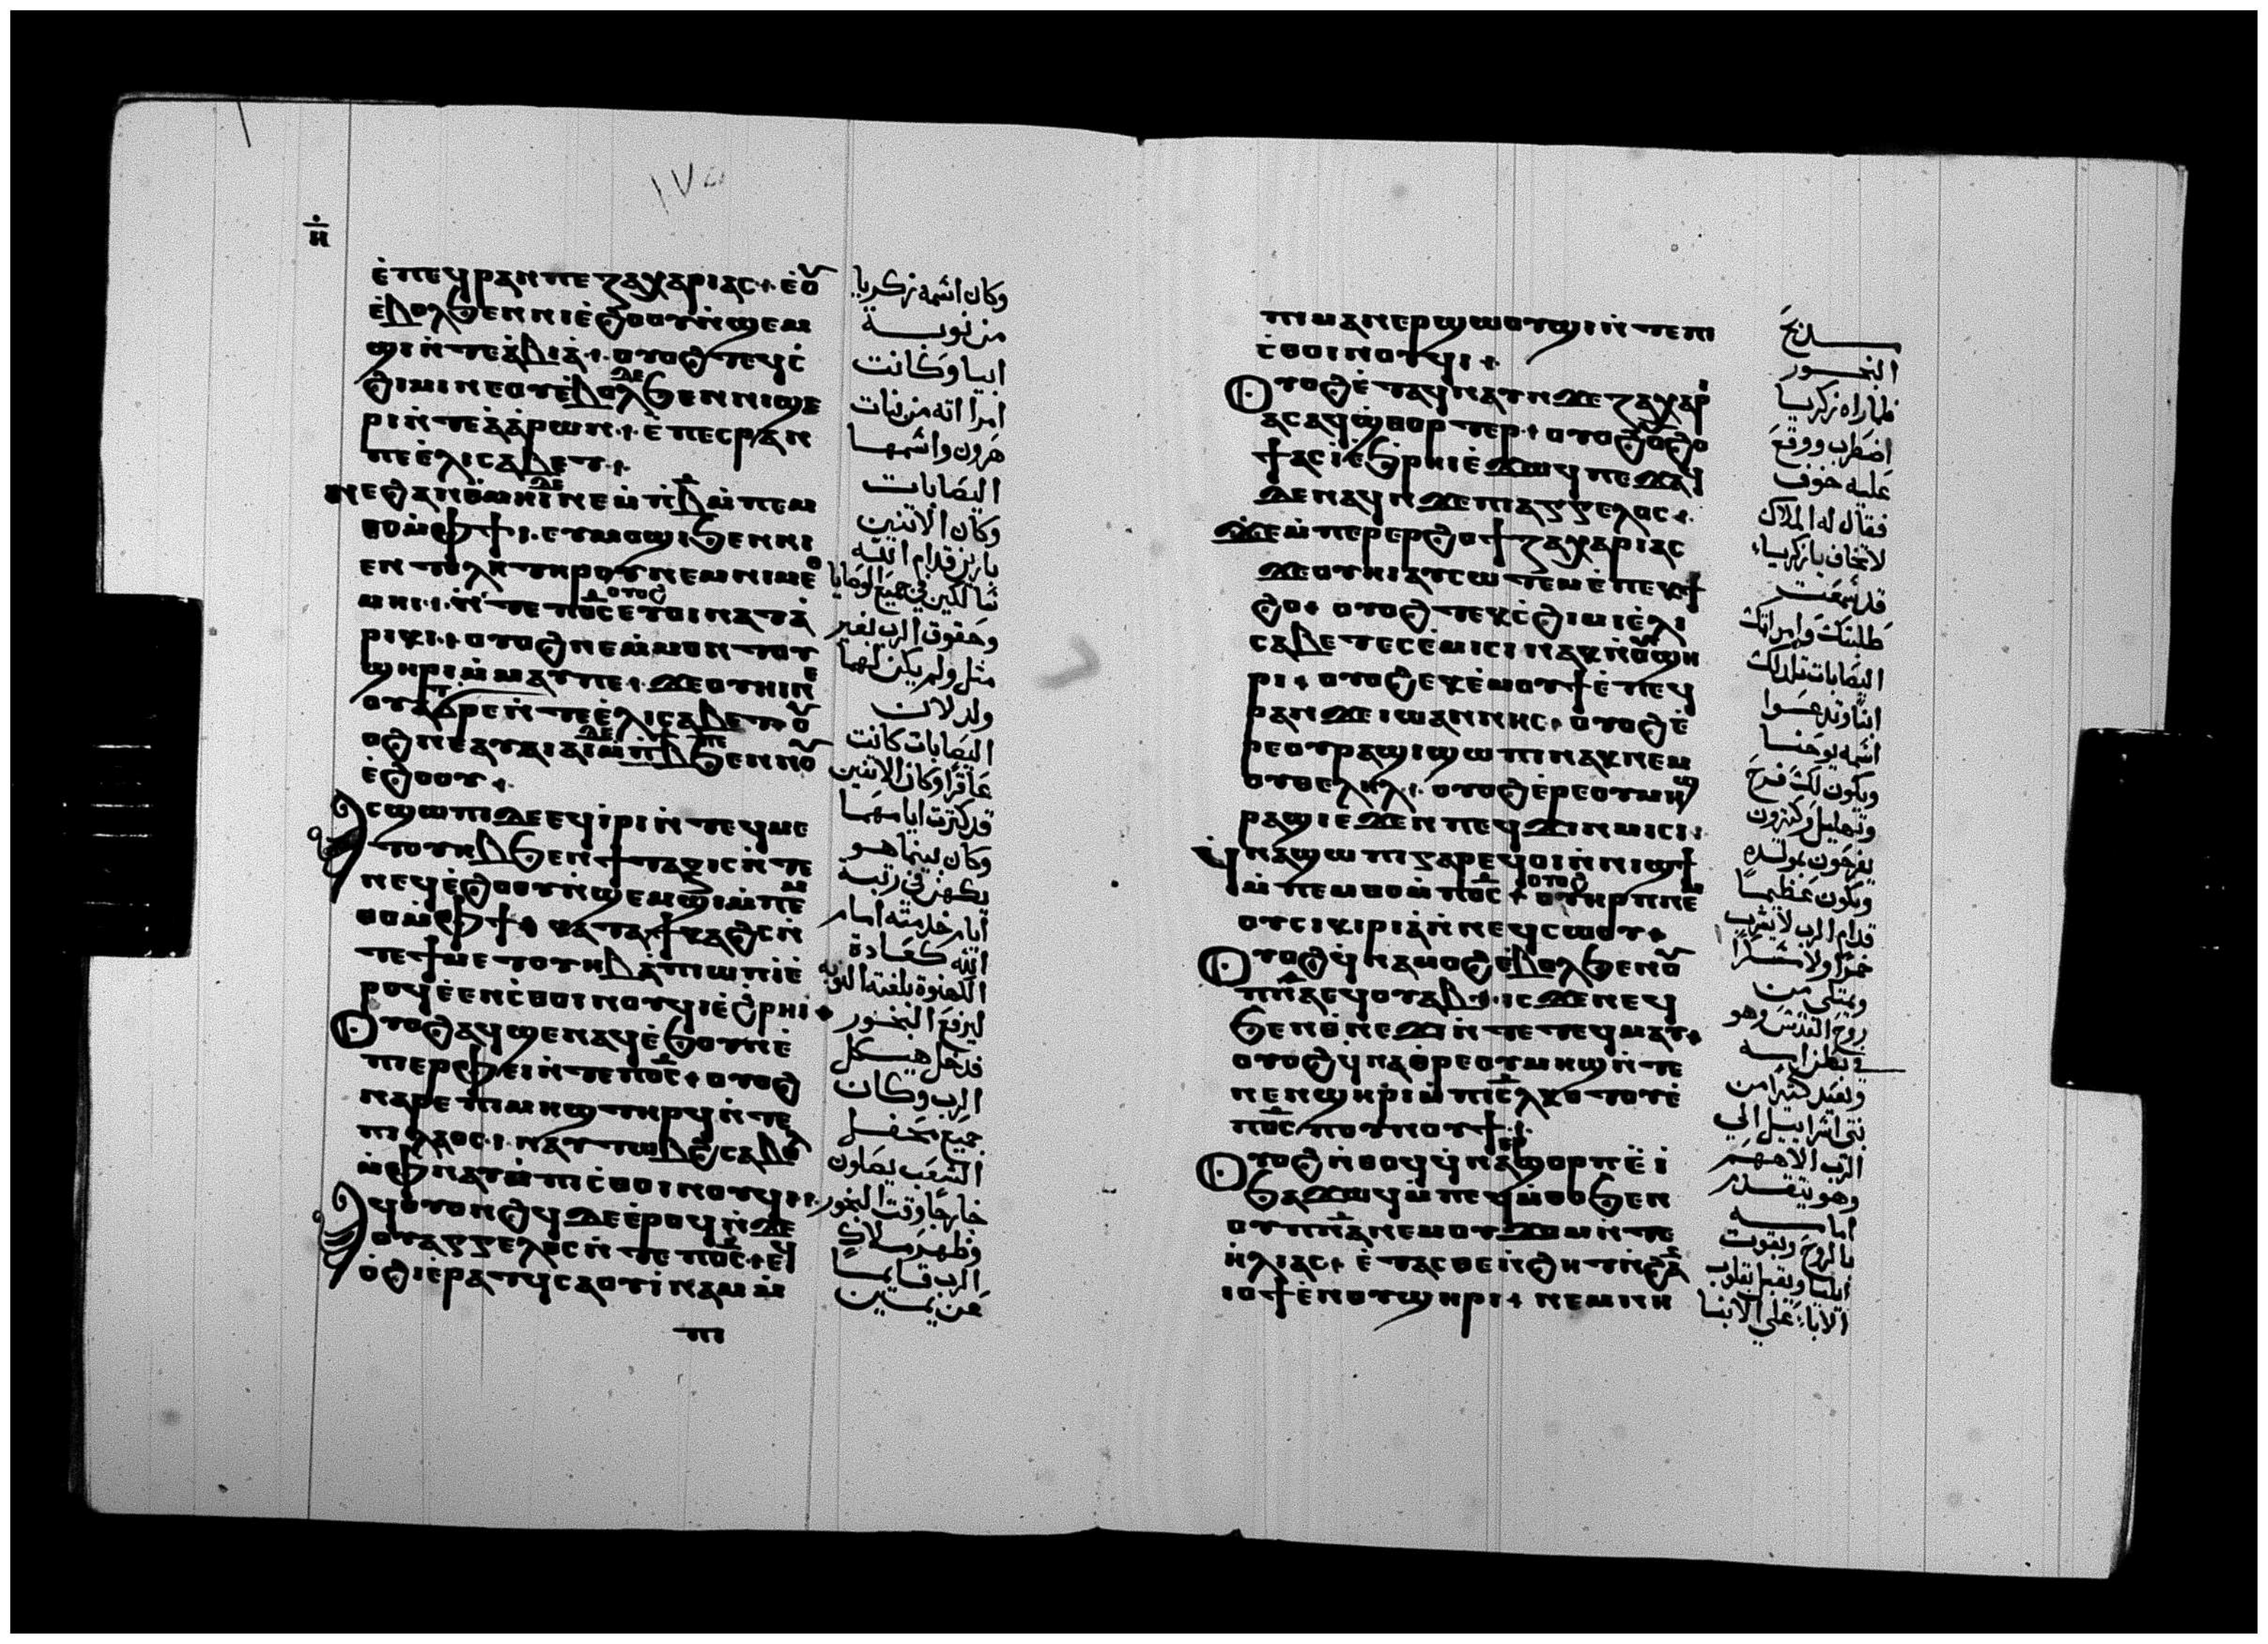 ١٧٥
ⲏ
ⲉ̀ⲡⲉϥⲣⲁⲛⲡⲉ ⲍⲁⲭⲁⲣⲓⲁⲥ ⲉ̀ⲟⲩ
ⲉ̀ⲃⲟⲗϧⲉⲛⲛⲓⲉ̀ϩⲟⲟⲩⲛ̀ϣⲉⲙ
ϣⲓⲛ̀ⲧⲉⲁ̀ⲃⲓⲁ̀ ⲟⲩⲟϩ ⲧⲉϥⲥ̀
ϩⲓⲙⲓ ⲛⲉⲟⲩⲉ̀ⲃⲟⲗϧⲉⲛⲛⲓϣⲉ
ⲣⲓⲛ̀ⲧⲉⲁ̀ⲁ̀ⲣⲱⲛ ⲉ̀ⲡⲉⲥⲣⲁⲛ
ⲡⲉⲉ̀ⲗⲓⲥⲁⲃⲉⲧ
ⲛⲉϩⲁⲛⲑ̀ⲙⲏⲓ ⲇⲉ ⲛⲉⲙ̀ⲡⲃ̄ⲙ̀ⲡⲉⲙ
ⲑⲟⲙ̀ⲫϯ ⲉⲩⲙⲟϣⲓϧⲉⲛⲛⲓ
ⲉⲛⲧⲟⲗⲏⲧⲏⲣⲟⲩⲛⲉⲙⲛⲓⲙⲉⲑ
ⲙⲏⲓ ⲛ̀ⲧⲉ ⲡⲟ̅ⲥ̅ ⲟⲩⲟϩ ⲉⲩⲟⲓⲛⲁⲧⲁ
ⲣⲓⲕⲓ ⲟⲩⲟϩⲛⲉⲙ̀ⲙⲟⲛⲧⲟⲩ
ϣⲏⲣⲓⲙ̀ⲙⲁⲩⲡⲉ ϫⲉⲟⲩⲏⲓⲛⲉ
ⲟⲩⲁⲧϭⲣⲏⲛ̀ⲧⲉⲉ̀ⲗⲓⲥⲁⲃⲉⲧ ⲟⲩ
ⲟϩⲛⲉⲁⲩⲁⲓⲁⲓ ⲇⲉ ⲙ̀ⲡⲃ̄ⲡⲉϧⲉⲛⲛⲟⲩ
ⲉ̀ϩⲟⲟⲩ
ⲁⲥϣⲱⲡⲓ ⲇⲉ ⲉϥⲓ̀ⲣⲓⲛ̀ⲧⲉϥⲙⲉ
ⲧⲟⲩⲏⲃϧⲉⲛϯⲧⲁⲝⲓⲥⲛ̀ⲧⲉ
ⲛⲉϥⲉ̀ϩⲟⲟⲩⲛ̀ϣⲉⲙϣⲓⲙ̀ⲡⲉⲙ
ⲑⲟⲙ̀ⲫϯ ⲕⲁⲧⲁϯⲕⲁϩⲥⲛ̀
ⲧⲉϯⲙⲉⲧⲟⲩⲏⲃⲁ̀ⲡⲓⲱⲡⲓⲉ̀
ⲣⲟϥⲉ̀ⲉⲛⲥ̀ⲑⲟⲓⲛⲟⲩϥⲓⲉ̀ϩ̀ⲣⲏⲓ
ⲟⲩⲟϩⲁϥϣⲉⲛⲁϥⲉ̀ϧⲟⲩⲛⲉ̀
ⲡⲓⲉⲣⲫⲉⲓⲛ̀ⲧⲉⲡⲟ̅ⲥ̅ ⲟⲩⲟϩ
ⲛⲁⲣⲉⲡⲓⲙⲏϣⲧⲏⲣϥⲛ̀ⲧⲉ
ⲡⲓⲗⲁⲟⲥ ⲛⲁⲩⲧⲱⲃϩⲥⲁⲃⲟⲗ
ⲙ̀ⲫⲛⲁⲩⲙ̀ⲡⲓⲥ̀ⲑⲟⲓⲛⲟⲩϥⲓ
ⲁϥⲟⲩⲟⲛϩϥ ⲇⲉ ⲉ̀ⲣⲟϥⲛ̀ϫⲉ
ⲟⲩⲁⲅⲅⲉⲗⲟⲥⲛ̀ⲧⲉ ⲡⲟ̅ⲥ̅ ⲉϥ
ⲟ̀ϩⲓⲉ̀ⲣⲁⲧϥⲥⲁⲟⲩⲓ̀ⲛⲁⲙⲙ̀
ⲡⲓ
وكان اسمه زكريا
من نوبــة
ابيا وكانت
امراته من بنات
هرون واسمها
اليصابات
وكان الاتنين
بارين قدام الله
سالكين في جميع الوصايا
وحقوق الرب بغير
مثل ولم يكن لهما
ولد لان
اليصابات كانت
عاقرا وكان الاتنين
قد كبرت ايامهما
وكان بينما هو
يكهن في رتبة
ايام خدمته امام
الله كعادة
الكهنوة بلغته النوبه
ليرفع البخور
فدخل هيكل
الرب وكان
جميع محفل
الشعب يصلون
خارجا وقت البخور
وظهر ملاك
الرب قايما
عن يمين
ⲡⲓⲙⲁⲛⲉⲣϣⲱⲟⲩϣⲓⲛ̀ⲧⲉⲡⲓ
ⲥ̀ⲑⲟⲓⲛⲟⲩϥⲓ
ⲟⲩⲟϩⲉ̀ⲧⲁϥⲛⲁⲩⲛ̀ϫⲉⲍⲁⲭⲁⲣⲓ
ⲁⲥⲁϥϣ̀ⲑⲟⲣⲧⲉⲣ ⲟⲩⲟϩⲟϩⲟ
ϯⲁⲥⲓ̀ⲉ̀ϧ̀ⲣⲏⲓⲉ̀ϫⲱϥⲡⲉϫⲁϥ
ⲇⲉⲛⲁϥⲛ̀ϫⲉⲡⲓⲁⲅⲅⲉⲗⲟⲥ
ϫⲉⲙ̀ⲡⲉⲣⲉⲣϩⲟϯⲍⲁⲭⲁⲣⲓⲁⲥ
ϫⲉⲟⲩⲏⲓⲁⲩⲥⲱⲧⲉⲙⲉ̀ⲡⲉⲕϯ
ϩⲟ ⲟⲩⲟϩⲧⲉⲕⲥ̀ϩⲓⲙⲓⲉ̀ⲗⲓ
ⲥⲁⲃⲉⲧⲉⲥⲉ̀ⲙⲓⲥⲓⲛⲁⲕⲛ̀ⲟⲩϣⲏ
ⲣⲓ ⲟⲩⲟϩⲉⲕⲉ̀ⲙⲟⲩϯⲉ̀ⲡⲉϥ
ⲣⲁⲛϫⲉⲓⲱⲁⲛⲛⲏⲥ ⲟⲩⲟϩⲉ̀
ⲣⲉⲟⲩⲣⲁϣⲓϣⲱⲡⲓⲛⲁⲕⲛⲉⲙ
ⲟⲩⲑⲉⲗⲏⲗ ⲟⲩⲟϩⲉ̀ⲣⲉⲟⲩⲙⲏϣ
ⲣⲁϣⲓⲉϫⲉⲛⲡⲉϥϫⲓⲛⲙⲓⲥⲓ
ϥ̀ⲛⲁϣⲱⲡⲓⲅⲁⲣⲉϥⲟⲓⲛ̀ⲛⲓϣϯ
ⲙ̀ⲡⲉⲙⲑⲟⲙ̀ⲡⲟ̅ⲥ̅ ⲟⲩⲟϩ ⲟⲩⲏⲣⲡⲛⲉⲙ
ⲟⲩⲥⲓⲕⲓⲣⲓⲁ̀ⲛ̀ⲛⲉϥⲥⲱⲟⲩ
ⲟⲩⲟϩϥ̀ⲛⲁⲙⲟϩⲉ̀ⲃⲟⲗϧⲉⲛⲟⲩ
ⲡⲛ̅ⲁ̅ⲉϥⲟⲩⲁⲃ ⲓⲥϫⲉⲛⲉϥ
ϧⲉⲛⲑ̀ⲛⲉϫⲓⲛ̀ⲧⲉⲧⲉϥⲙⲁⲩ
ⲟⲩⲟϩϥ̀ⲛⲁⲑ̀ⲣⲉⲟⲩⲙⲏϣⲛ̀ⲧⲉ
ⲛⲉⲛϣⲏⲣⲓⲙ̀ⲡⲓⲥ̅ⲗ̅ⲕⲟⲧⲟⲩⲉ̀
ⲡⲟ̅ⲥ̅ⲡⲟⲩⲛⲟⲩϯ
ⲟⲩⲟϩⲛ̀ⲑⲟϥϥ̀ⲛⲁⲉⲣϣⲟⲣⲡⲉ̀ⲓ̀
ϧⲁϫⲱϥⲙ̀ⲡⲉϥⲙ̀ⲑⲟϧⲉⲛ
ⲟⲩⲡⲛ̅ⲁ̅ⲛⲉⲙⲟⲩϫⲟⲙⲛ̀ⲧⲉ
ⲏ̀ⲗⲓⲁⲥ ⲉ̀ⲧⲁⲥⲑⲉⲛ̀ϩⲏⲧⲛ̀ϩⲁⲛ
ⲓⲟϯⲉ̀ⲛⲟⲩϣⲏⲣⲓ ⲛⲉⲙⲛⲏ
مــذبح
البخــور
فلما راه زكريا
اضطرب ووقع
عليه خوف
فقال له الملاك
لا تخاف يا زكرياء
قد سمعت
طلبتك وامراتك
اليصابات تلد لك
ابنا وتدعــوا
اسمه يوحنــا
ويكون لك فرح
وتهليل وكثيرون
يفرحون بمولده
ويكون عظيما
قدام الرب لا يشرب
خمرا ولا مسكرا
ويمتلى من
روح القدس وهو
في بطن امــه
ويعيد كثيرا من
بني اسراييل الي
الرب الاههم
وهو يتقــدم
امامــه
بالروح وبقوت
ايليا ويقبل بقلوب
الاباء علي الابنا